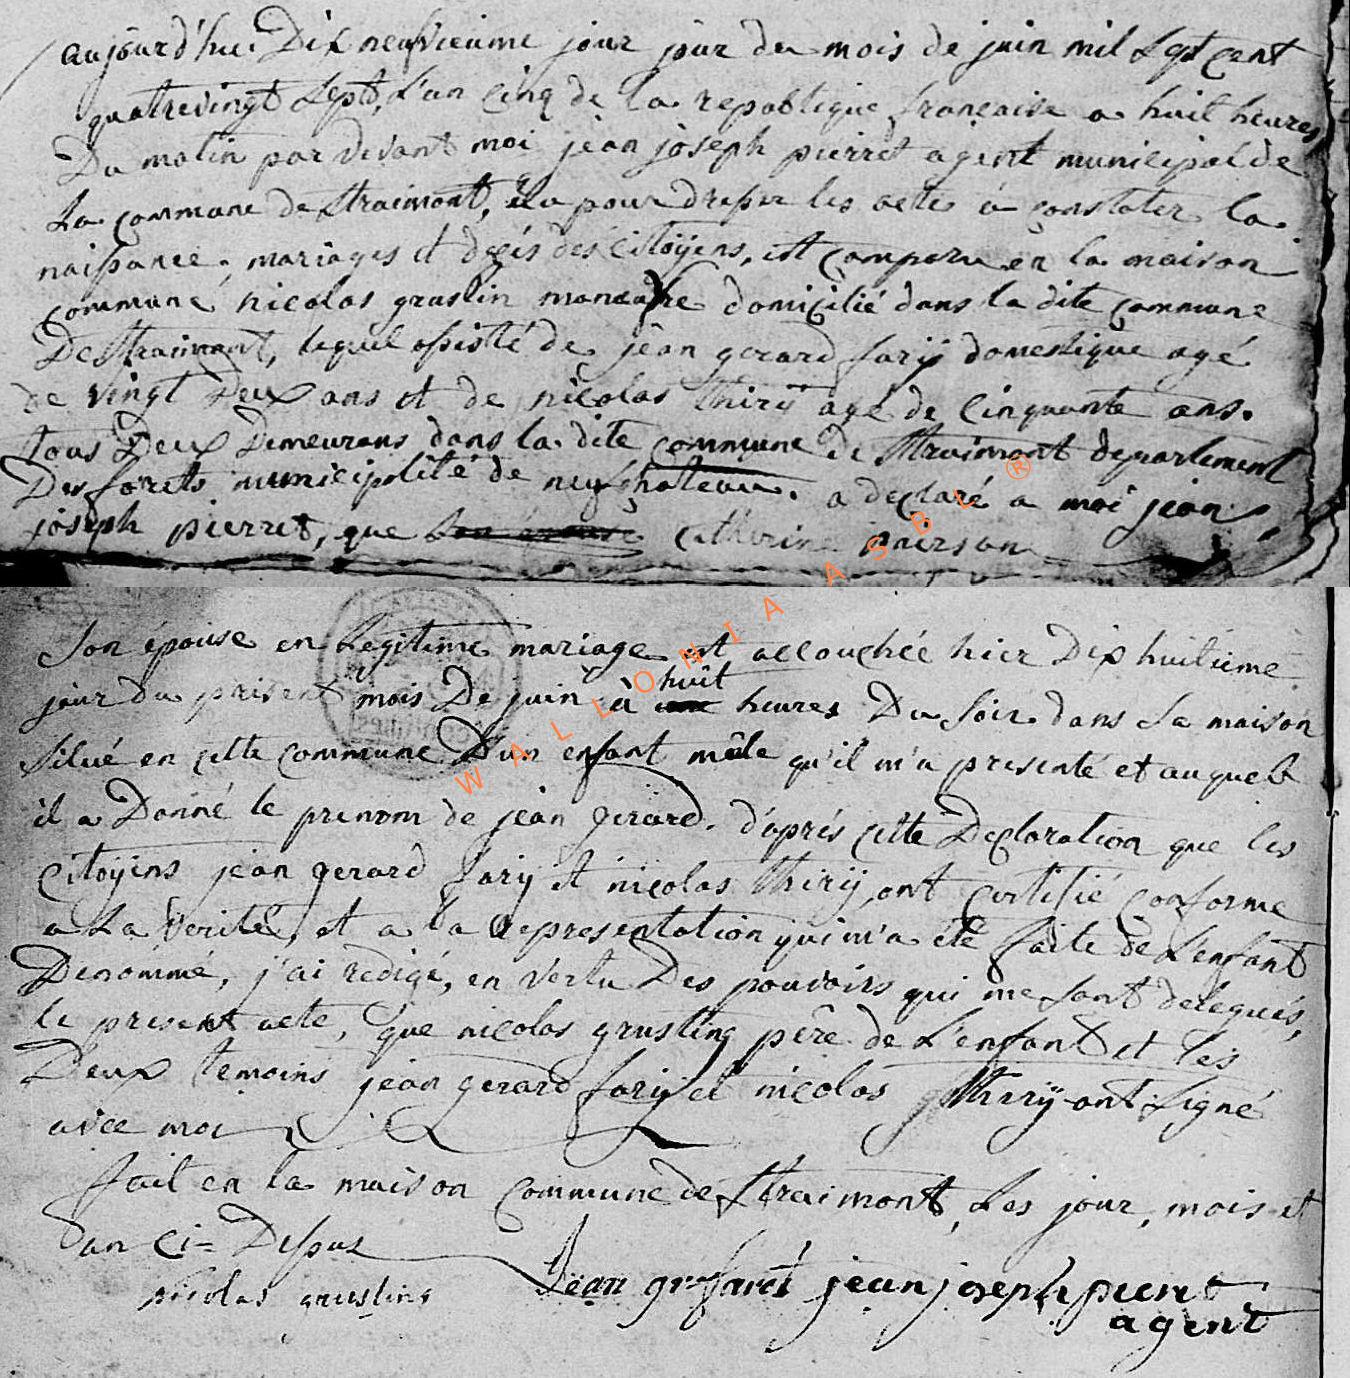 aujourd'hui Dix neufvieume jour jour du mois de juin mil sept cent
quatrevingt sept, l'an cinq de la republique francaise a huit heures
Du matin par devant moi jean joseph pierret agent municipal de
La commune de straimont, élu pour dresser les actes à constater la
naissance, mariages et décés des citoÿens, est comparu en la maison
commune nicolas gruslin manœuvre domicilié dans la dite commune
De straimont, lequel assisté de jean gerard farÿ domestique agé
de vingt Deux ans et de nicolas thirÿ agé de cinquante ans.
tous Deux Demeurans dans la dite commune de straimont departement
Des forets municipalité de neufchateau. a declaré a moi jean
joseph pierret, que son épouse catherine pierson
son épouse en Legitime mariage est accouchée hier Dix huitieme
jour du present mois De juin à huit heures Du soir dans sa maison
situé en cette commune D'un enfant mâle qu'il m'a presenté et auquel
il a Donné le prenom de jean gerard. d'aprés cette Declaration que les
citoÿens jean gerard farÿ et nicolas thirÿ, ont certifié conforme
a La verité, et a la representation qui m'a été faite de L'enfant
Denommé, j'ai redigé, en vertu Des pouvoirs qui me sont delegués,
le present acte, que nicolas grusling pêre de L'enfant et les
Deux temoins jean gerard farÿ et nicolas thirÿ ont signé
avec moi
fait en la maison commune de straimont, Les jour, mois et
an ci-Dessus
nicolas grusling Jean jean joseph pierret
agent
WALLONIA ASBL ®